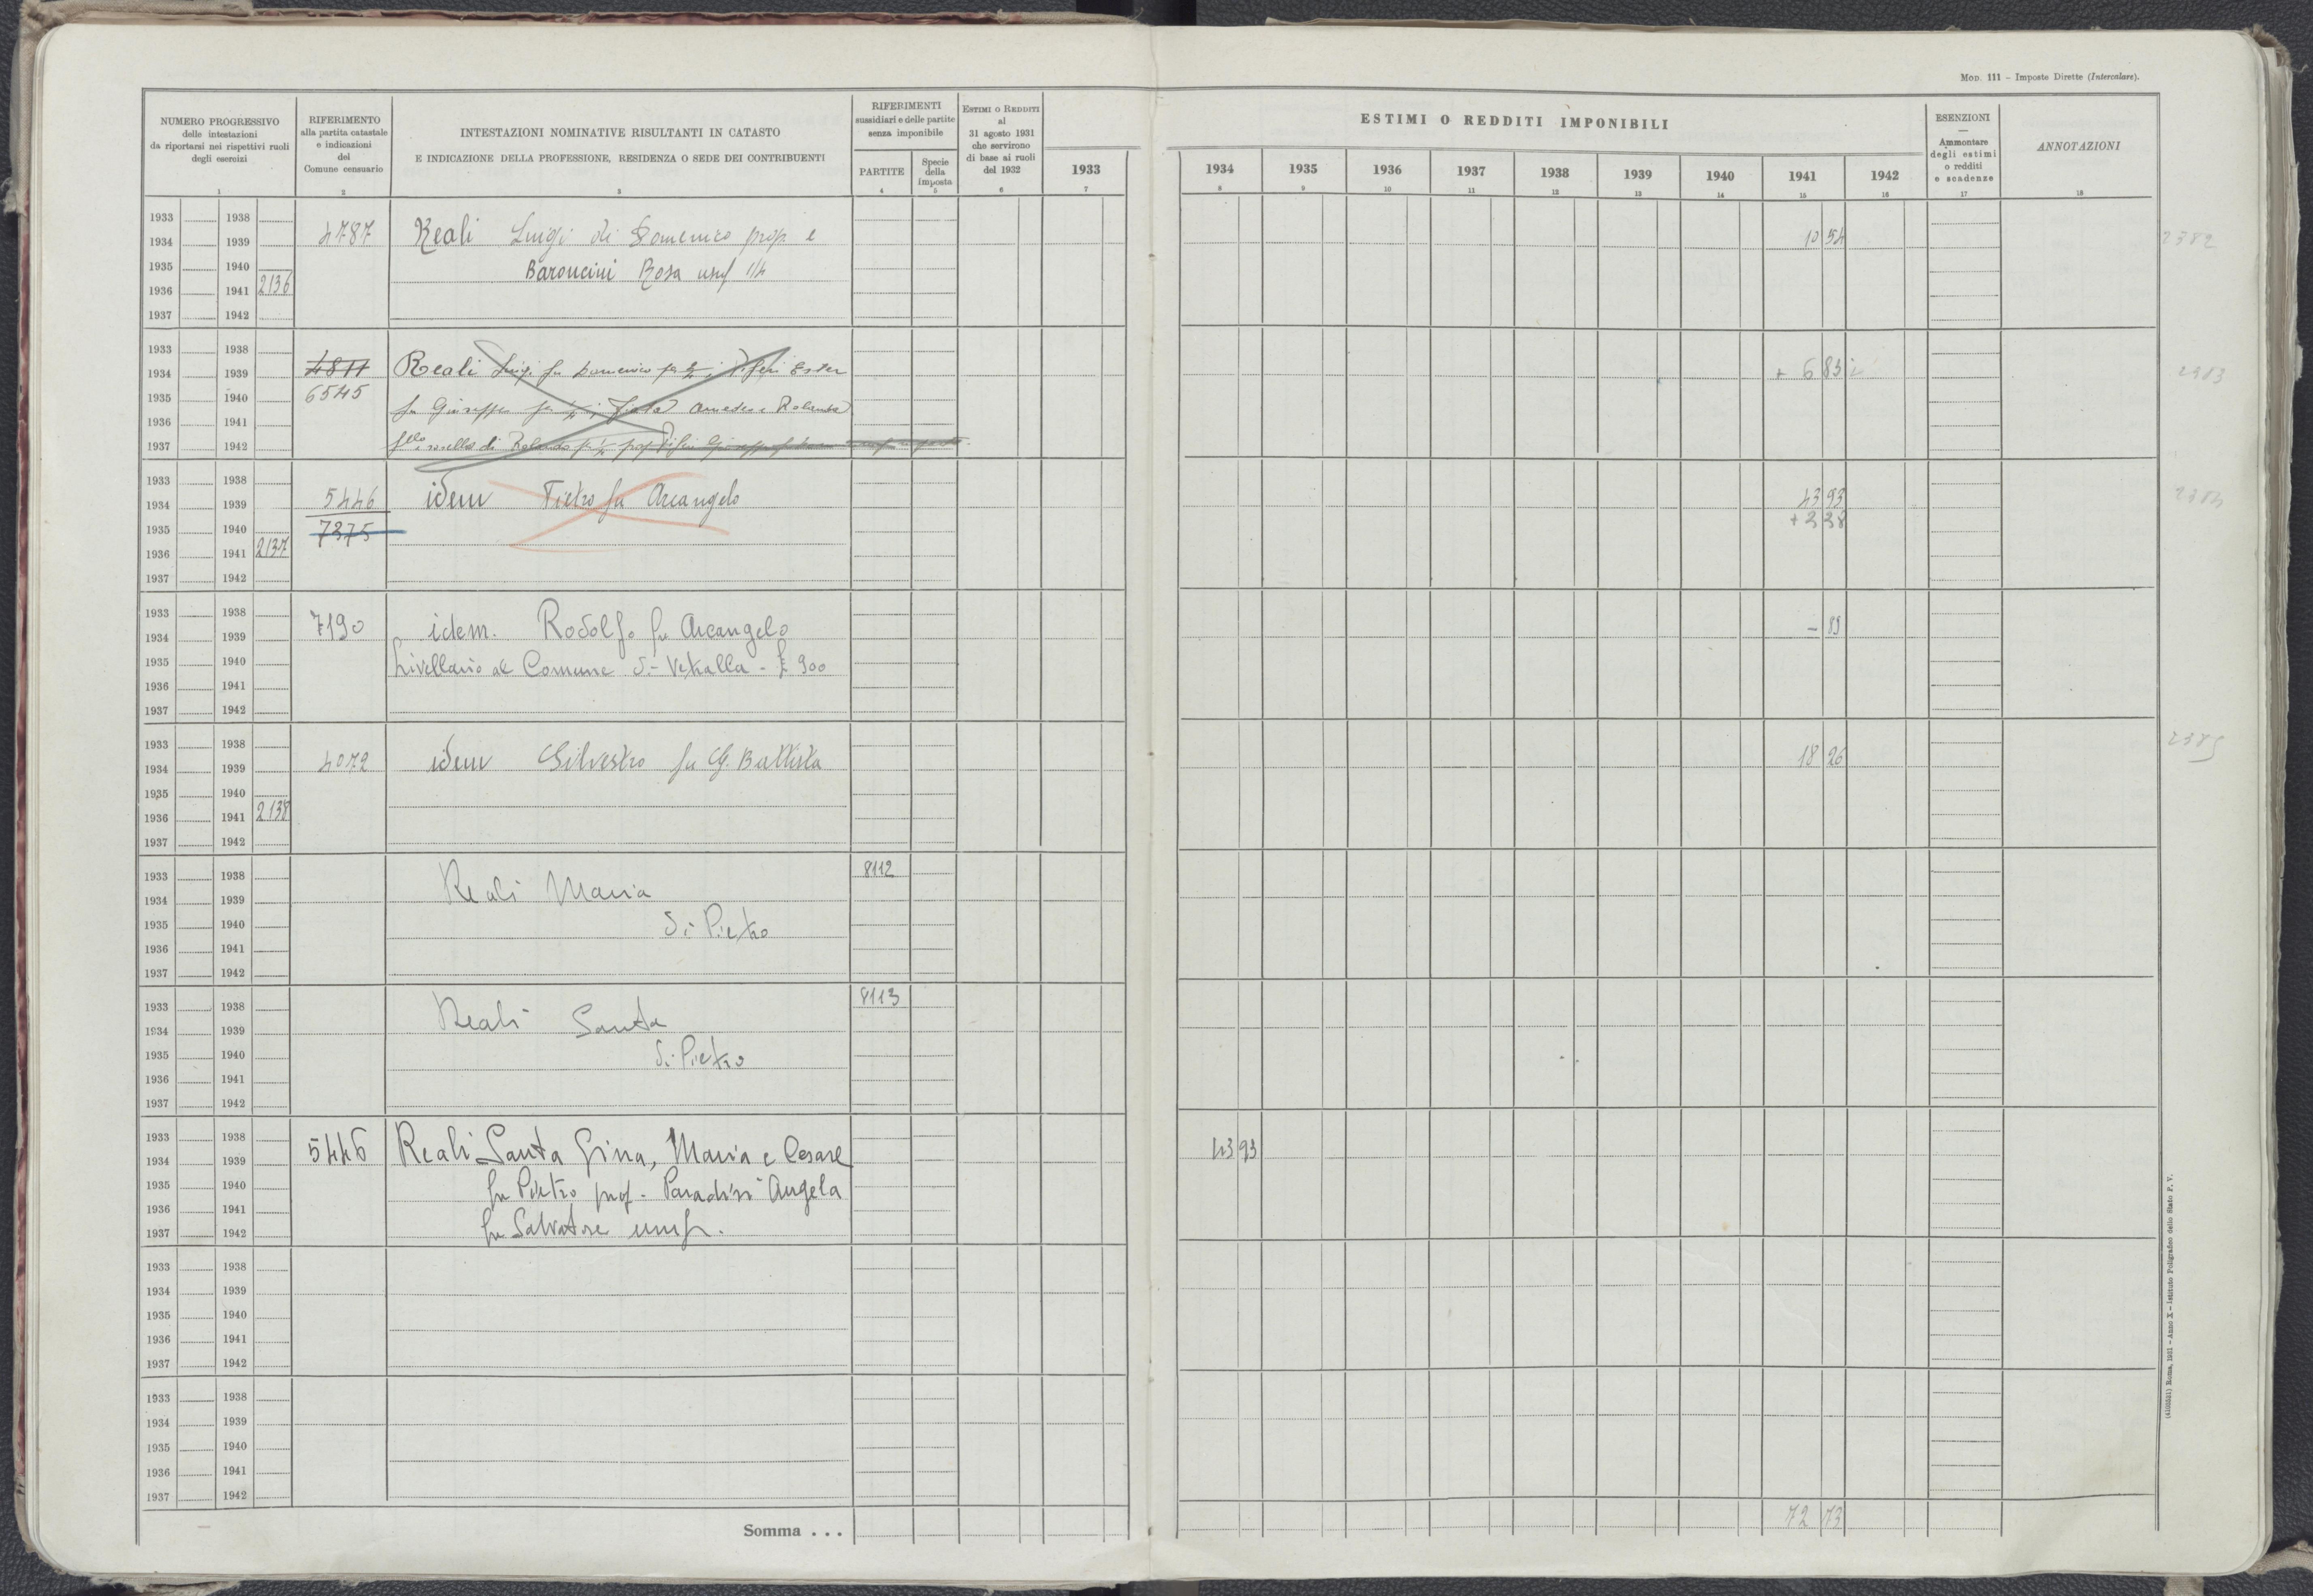 MOD. 111 – Imposte Dirette (Intercalare).
NUMERO PROGRESSIVO
delle intestazioni
da riportarsi nei rispettivi ruoli
degli esercizi
1
RIFERIMENTO
alla partita catastale
e indicazioni
del
Comune censuario
2
INTESTAZIONI NOMINATIVE RISULTANTI IN CATASTO
E INDICAZIONE DELLA PROFESSIONE, RESIDENZA O SEDE DEI CONTRIBUENTI
3
RIFERIMENTI
sussidiari e delle partite
senza imponibile
PARTITE
4
Specie
della
imposta
5
ESTIMI O REDDITI
al
31 agosto 1931
che servirono
di base ai ruoli
del 1932
6
ESTIMI O REDDITI IMPONIBILI
1933 1934 1935 1936 1937 1938 1939 1940 1941 1942
7 8 9 10 11 12 13 14 15 16
ESENZIONI
—
Ammontare
degli estimi
o redditi
e scadenze
17
ANNOTAZIONI
18
1933 1938
1934 1939 4787 Reali Luigi di Domenico prop. e 10 54 2382
1935 1940 Baroncini Rosa usuf 1/4
1936 1941 2136
1937 1942
1933 1938
1934 1939 4811 Reali Luigi fu Domenico per Ester + 6 83 2383
1935 1940 6545 fu Giuseppe Amedeo e Rolanda
1936 1941
1937 1942 di Rolando
1933 1938
1934 1939 5446 idem Pietro fu Arcangelo 43 93 2384
1935 1940 7375 + 3 38
1936 1941 2137
1937 1942
1933 1938
1934 1939 7190 idem. Rodolfo fu Arcangelo – 89
1935 1940 Livellario al Comune di Vetralla - £ 900
1936 1941
1937 1942
1933 1938
1934 1939 4072 idem Silvestro fu G. Battista 18 26 2385
1935 1940
1936 1941 2138
1937 1942
1933 1938 8112
1934 1939 Reali Maria
1935 1940 di Pietro
1936 1941
1937 1942
1933 1938 8113
1934 1939 Reali Santa
1935 1940 di Pietro
1936 1941
1937 1942
1933 1938
1934 1939 5446 Reali Santa Gina, Maria e Cesare 43 93
1935 1940 fu Pietro prop. - Paradisi Angela
1936 1941
1937 1942 fu Salvatore usuf.
1933 1938
1934 1939
1935 1940
1936 1941
1937 1942
1933 1938
1934 1939
1935 1940
1936 1941
1937 1942
Somma . . . 72 73
Roma, 1931 – Anno X – Istituto Poligrafico dello Stato P. V.